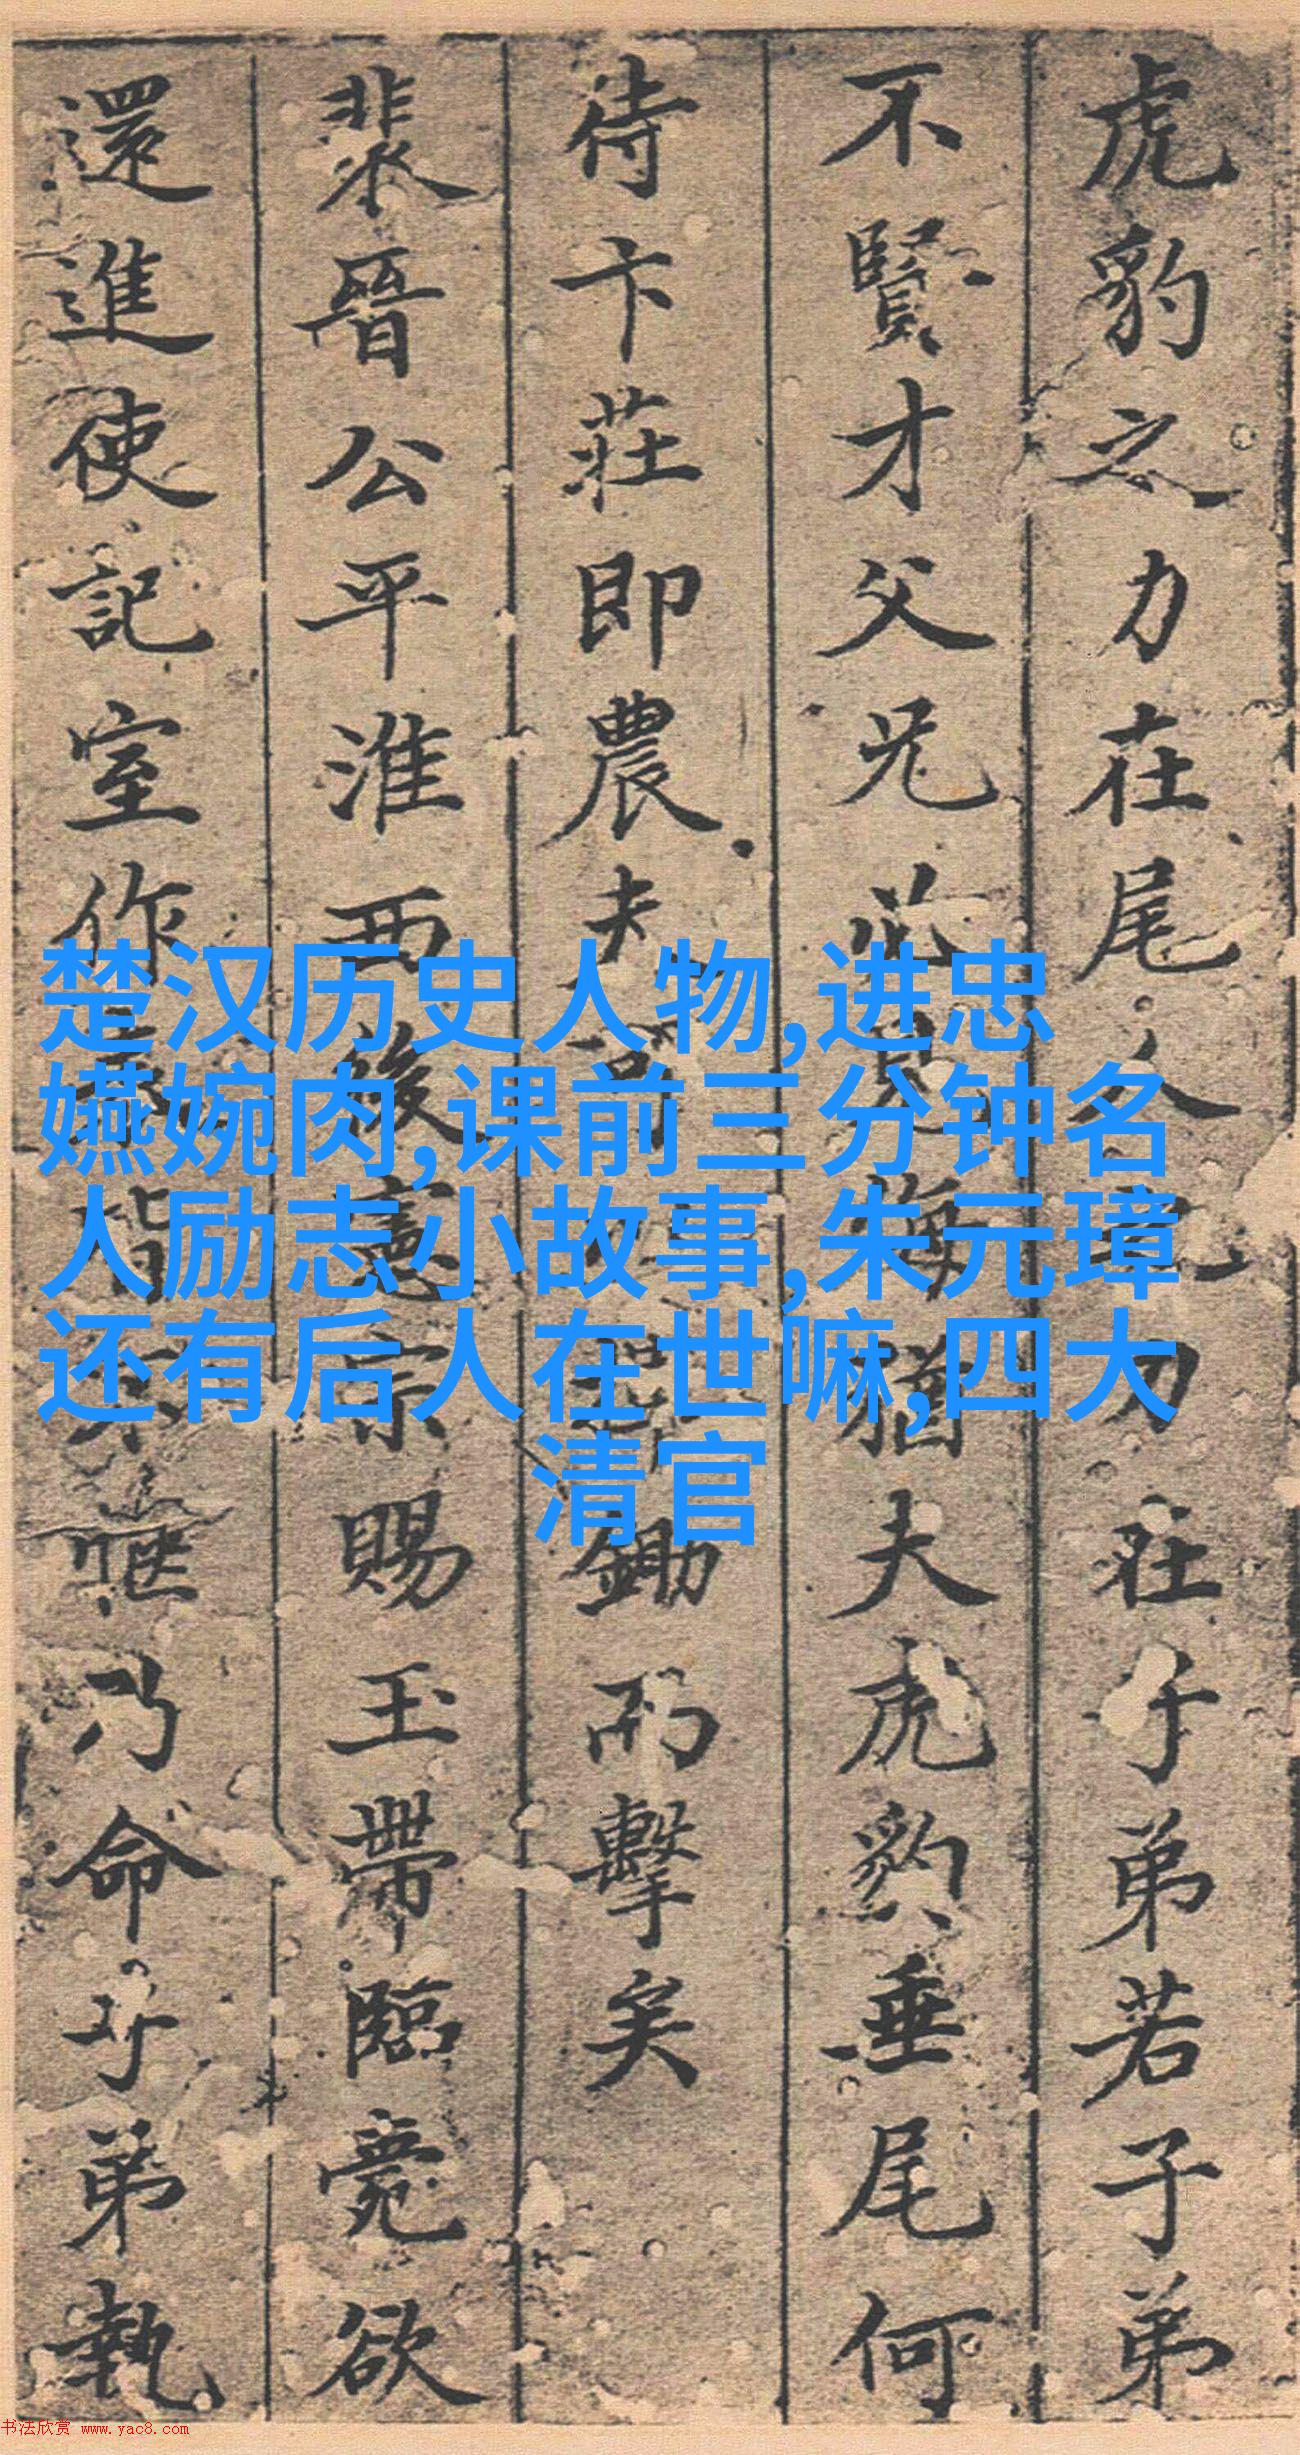 虎豹之力在尾人之力在子弟若子弟
不賢才父兄必見侮猶夫虎豹垂尾何
待卞莊即農夫
鋤而擊矣
裴晉公平淮西後憲宗賜玉帶臨薨欲
還進使記室作表皆不愜乃命子弟執
楚汉历史人物,进忠
嬿婉肉,课前三分钟名
人励志小故事,朱元璋
还有后人在世嘛,四大
清官
书法欣赏 www.yac8.com